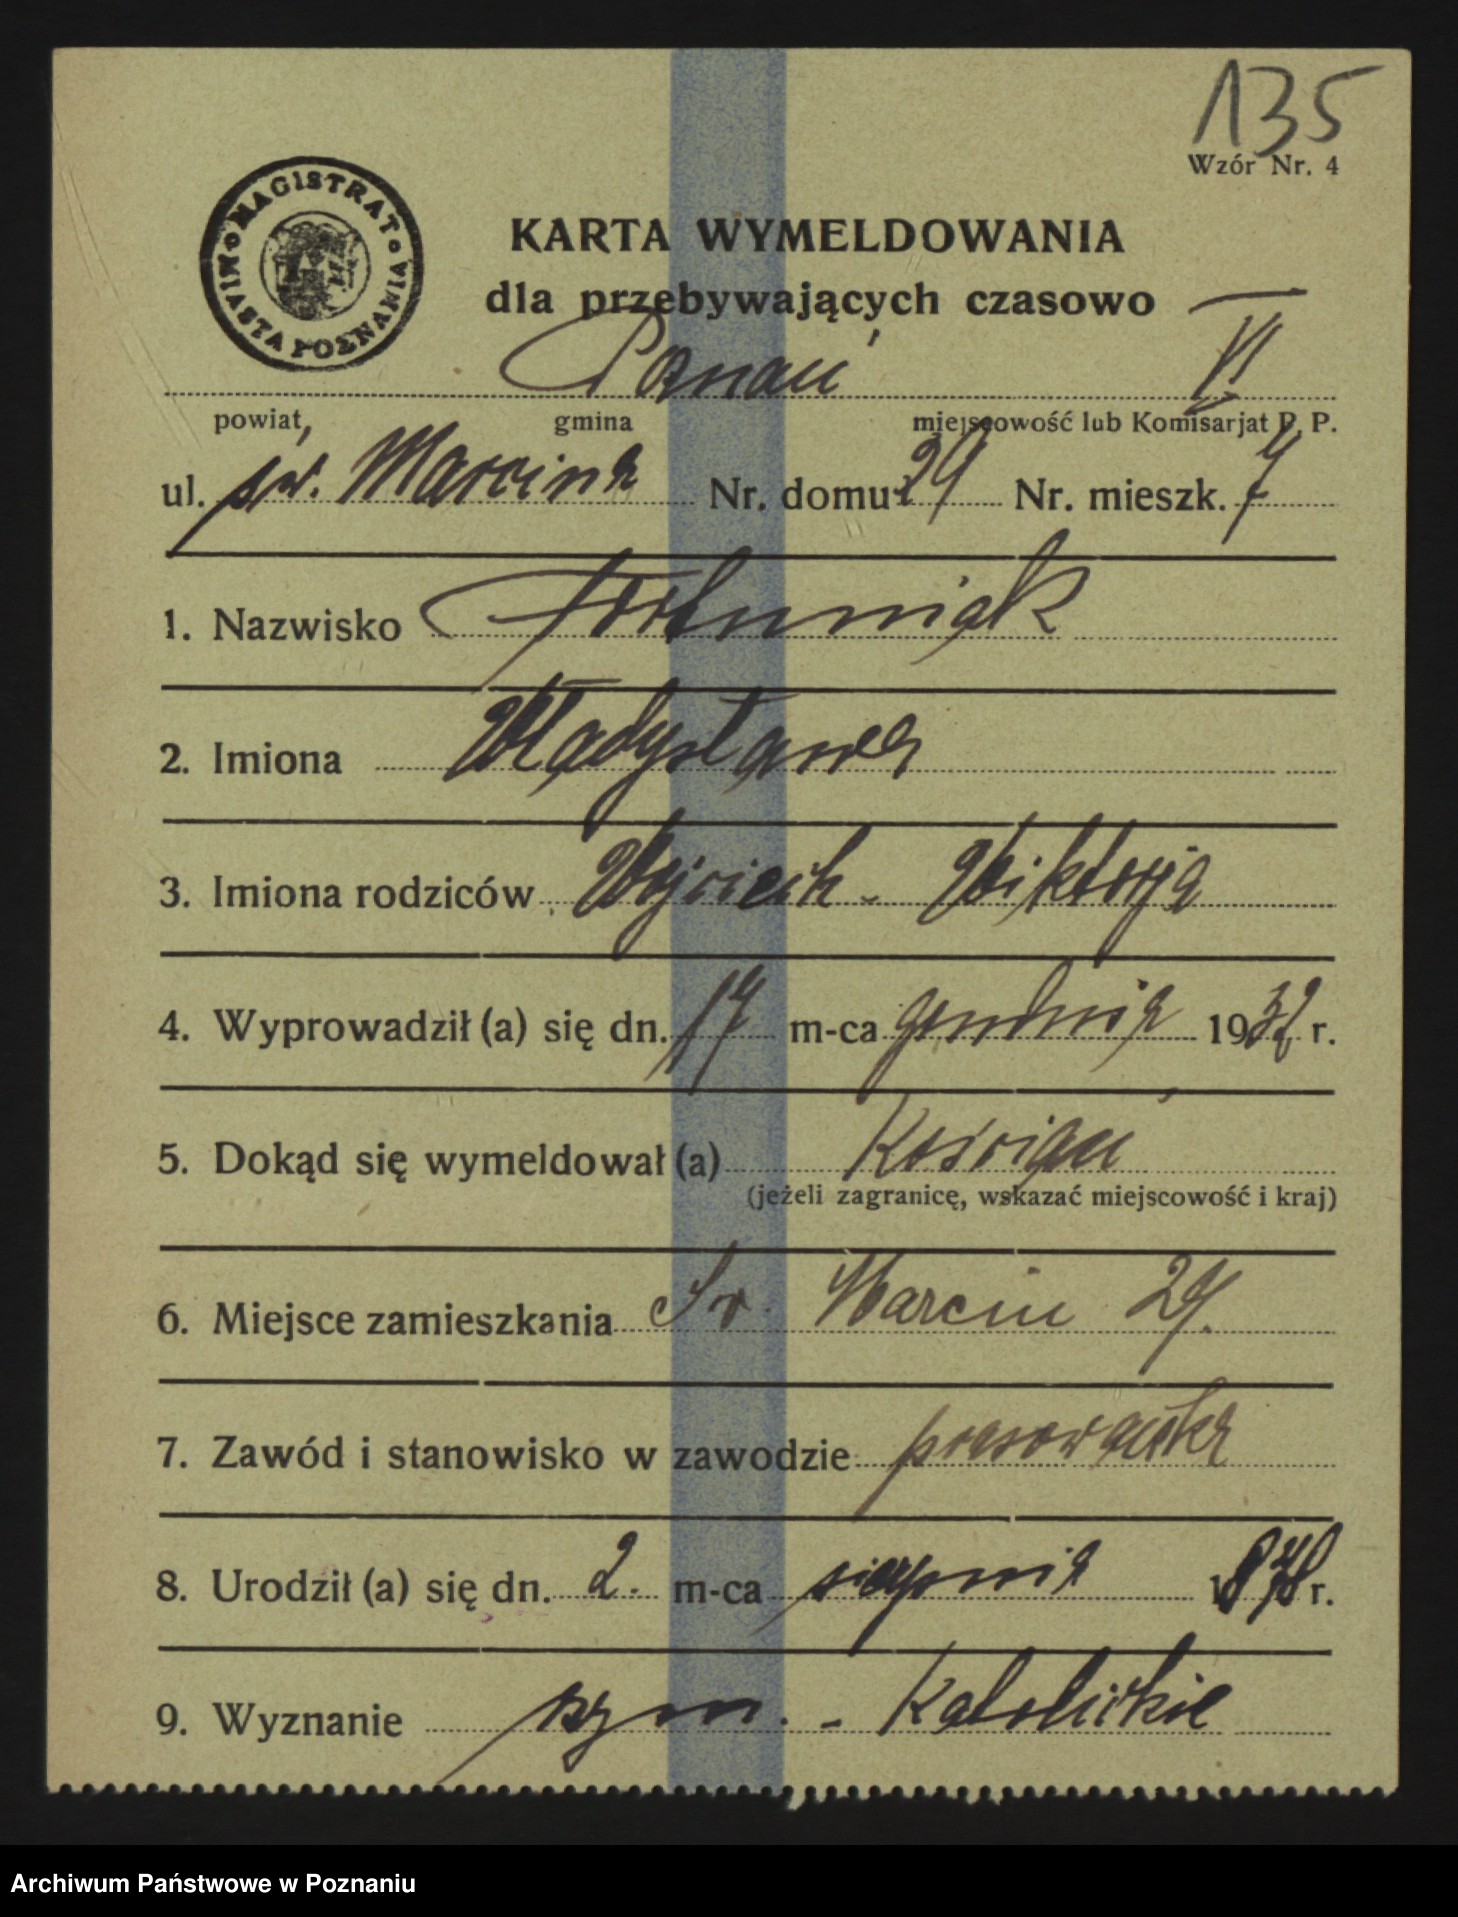 135
Wzór Nr. 4
MAGISTRAT MIASTA POZNANIA
KARTA WYMELDOWANIA
dla przebywających czasowo
Poznań VI
powiat, gmina miejscowość lub Komisarjat P. P.
ul. św. Marcina Nr. domu 29 Nr. mieszk. 7
1. Nazwisko
2. Imiona Władysława
3. Imiona rodziców Wojciech - Wiktorja
4. Wyprowadził (a) się dn. 17 m-ca grudnia 1932 r.
5. Dokąd się wymeldował (a) Kościan
(jeżeli zagranicę, wskazać miejscowość i kraj)
6. Miejsce zamieszkania Św. Marcin 29.
7. Zawód i stanowisko w zawodzie
8. Urodził (a) się dn. 2. m-ca sierpnia 1878 r.
9. Wyznanie rzym. - Katolickie
Archiwum Państwowe w Poznaniu